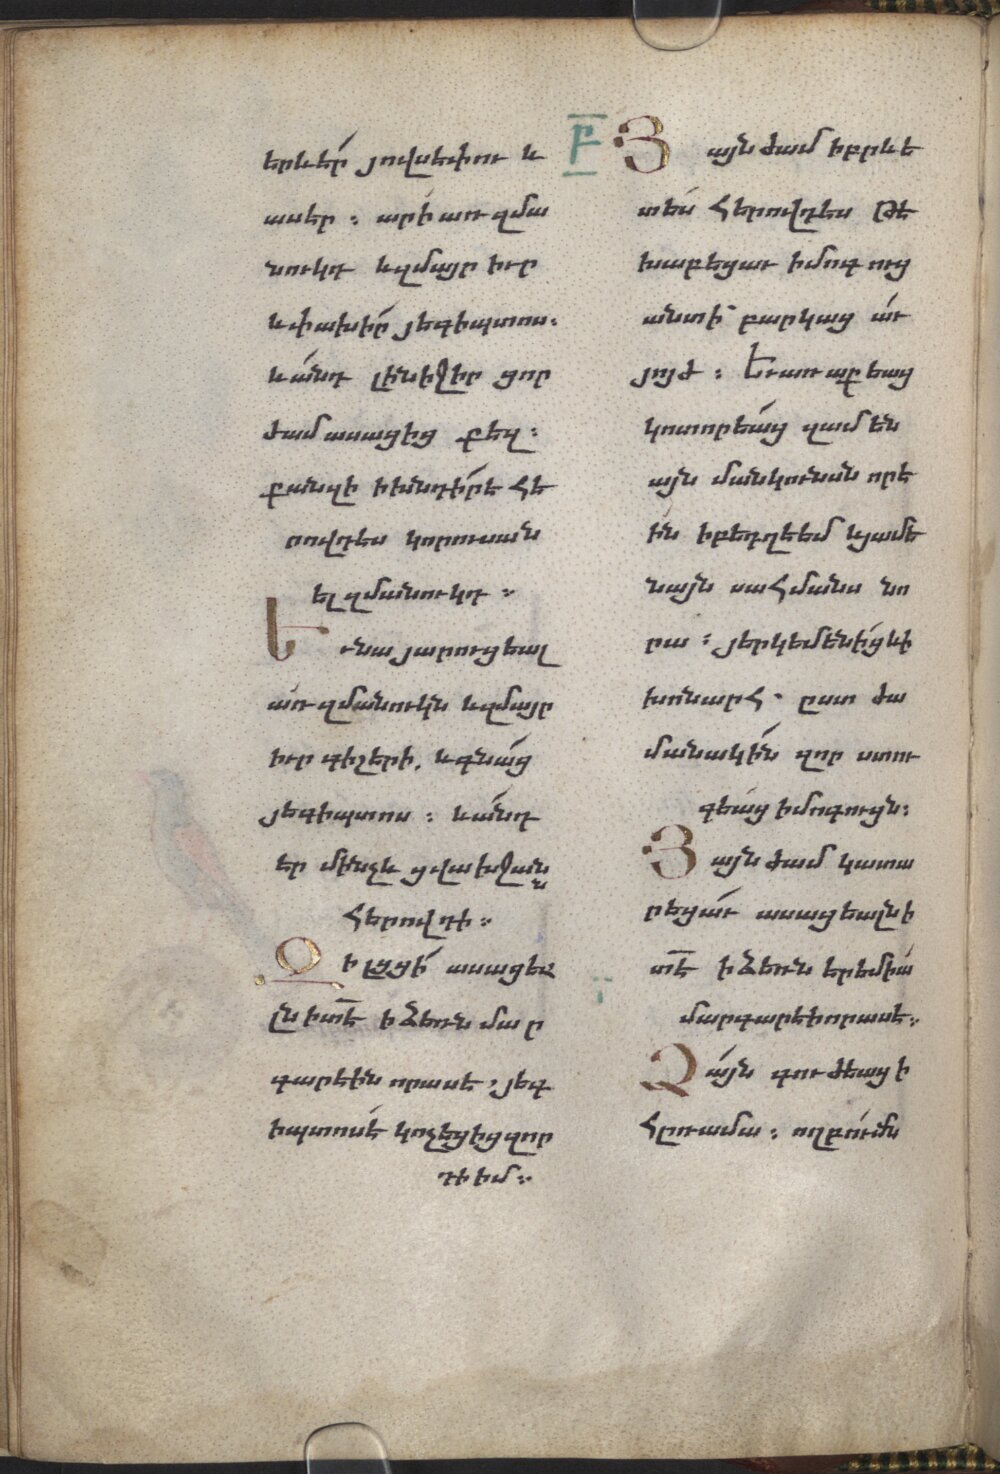 երևեր յովսեփու և
ասէր ։ արի առ զմա
նուկդ և զմայր իւր
և փախիր յեգիպտոս։
և անդ լինիջիր ցոր
ժամ ասացից քեզ ։
քանզի ի խնդիր է հե
րովդես կորուսան
ել զմանուկդ ։
Եւ նա յարուցեալ
առ զմանուկն և զմայր
իւր գիշերի. և գնաց
յեգիպտոս ։ և անդ
էր մինչև ցվախջանն
հերովդի ։
Զի լցցի ասացեա
լն ի տէ ի ձեռն մար
գարէին որ ասէ, յեգ
իպտոսէ կոչեցից զոր
դի իմ ։
Բ
Յայնժամ իբրև ե
տես հերովդես թէ
խաբեցաւ ի մոգուց
անտի՝ բարկացաւ
յոյժ ։ Եւ առաքեաց
կոտորեաց զամեն
այն մանկունսն որ է
ին ի բեդղեեմ և յամե
նայն սահմանս նո
րա ։ յերկեմենից և ի
խոնարհ ՝ ըստ ժա
մանակին զոր ստու
գեաց ի մոգուցն։
Յայնժամ կատա
րեցաւ ասացեալն ի
տէ ի ձեռն երեմիա
մարգարէի որ ասէ։
Ձայն գուժեաց ի
հռամա ։ ողբումն